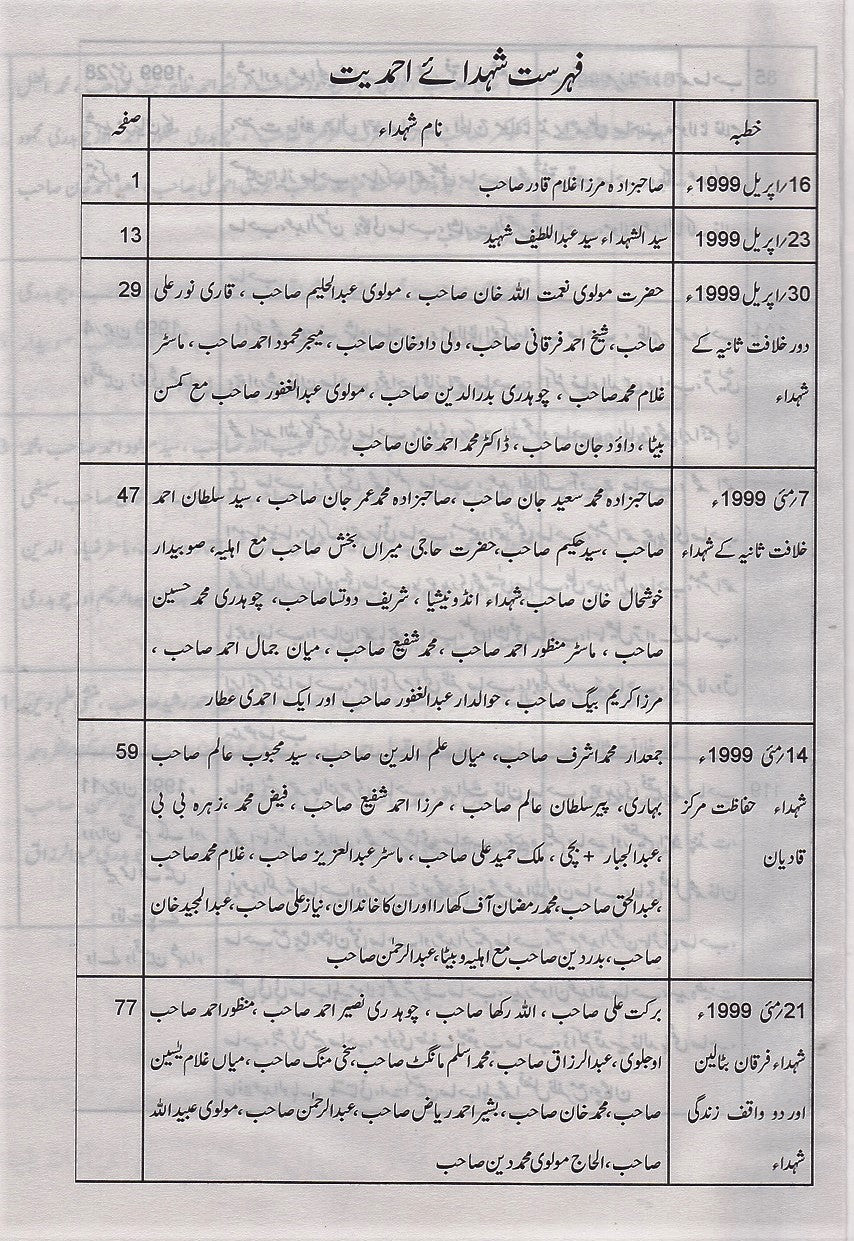 فہرست شہدائے احمدیت
خطبہ نام شہداء صفحہ
16/اپریل 1999ء صاحبزادہ مرزا غلام قادر صاحب 1
23/اپریل 1999 سید الشہداء سید عبداللطیف شہید 13
30/اپریل 1999ء حضرت مولوی نعمت اللہ خان صاحب ، مولوی عبدالحلیم صاحب ، قاری نور علی 29
دور خلافت ثانیہ کے صاحب، شیخ احمد فرقانی صاحب، ولی داد خان صاحب ، میجر محمود احمد صاحب ، ماسٹر
شہداء غلام محمد صاحب ، چوہدری بدرالدین صاحب ، مولوی عبدالغفور صاحب مع کمسن
بیٹا ، داؤد جان صاحب ، ڈاکٹر محمد احمد خان صاحب
7/مئی 1999ء صاحبزادہ محمد سعید جان صاحب ،صاحبزادہ محمد عمر جان صاحب ، سید سلطان احمد 47
خلافت ثانیہ کے شہداء صاحب ،سید حکیم صاحب،حضرت حاجی میراں بخش صاحب مع اہلیہ، صوبیدار
خوشحال خان صاحب،شہداء انڈونیشیا ، شریف دوتسا صاحب، چوہدری محمد حسین
صاحب ، ماسٹر منظور احمد صاحب ، محمد شفیع صاحب ، میان جمال احمد صاحب ،
مرزا کریم بیگ صاحب ، حوالدار عبدالغفور صاحب اور ایک احمدی عطار
14/مئی 1999ء جمعدار محمد اشرف صاحب، میاں علم الدین صاحب، سید محبوب عالم صاحب 59
شہداء حفاظت مرکز بہاری، پیر سلطان عالم صاحب ، مرزا احمد شفیع صاحب ، فیض محمد ،زہرہ بی بی
قادیان ،عبدالجبار + بچی ، ملک حمید علی صاحب ، ماسٹر عبدالعزیز صاحب ، غلام محمد صاحب
،عبدالحق صاحب،محمد رمضان آف کھارا اور ان کا خاندان ، نیاز علی صاحب ،عبدالمجید خان
صاحب ،بدر دین صاحب مع اہلیہ و بیٹا ،عبدالرحمٰن صاحب
21/مئی 1999ء برکت علی صاحب ، اللہ رکھا صاحب ، چوہدری نصیر احمد صاحب ،منظور احمد صاحب 77
شہداء فرقان بٹالین اوجلوی ،عبدالرزاق صاحب ،محمد اسلم مانگٹ صاحب،سخی منگ صاحب ،میاں غلام یٰسین
اور دو واقف زندگی صاحب ،محمد خان صاحب ،بشیر احمد ریاض صاحب ،عبدالرحمٰن صاحب ،مولوی عبیداللہ
شہداء صاحب ،الحاج مولوی محمد دین صاحب